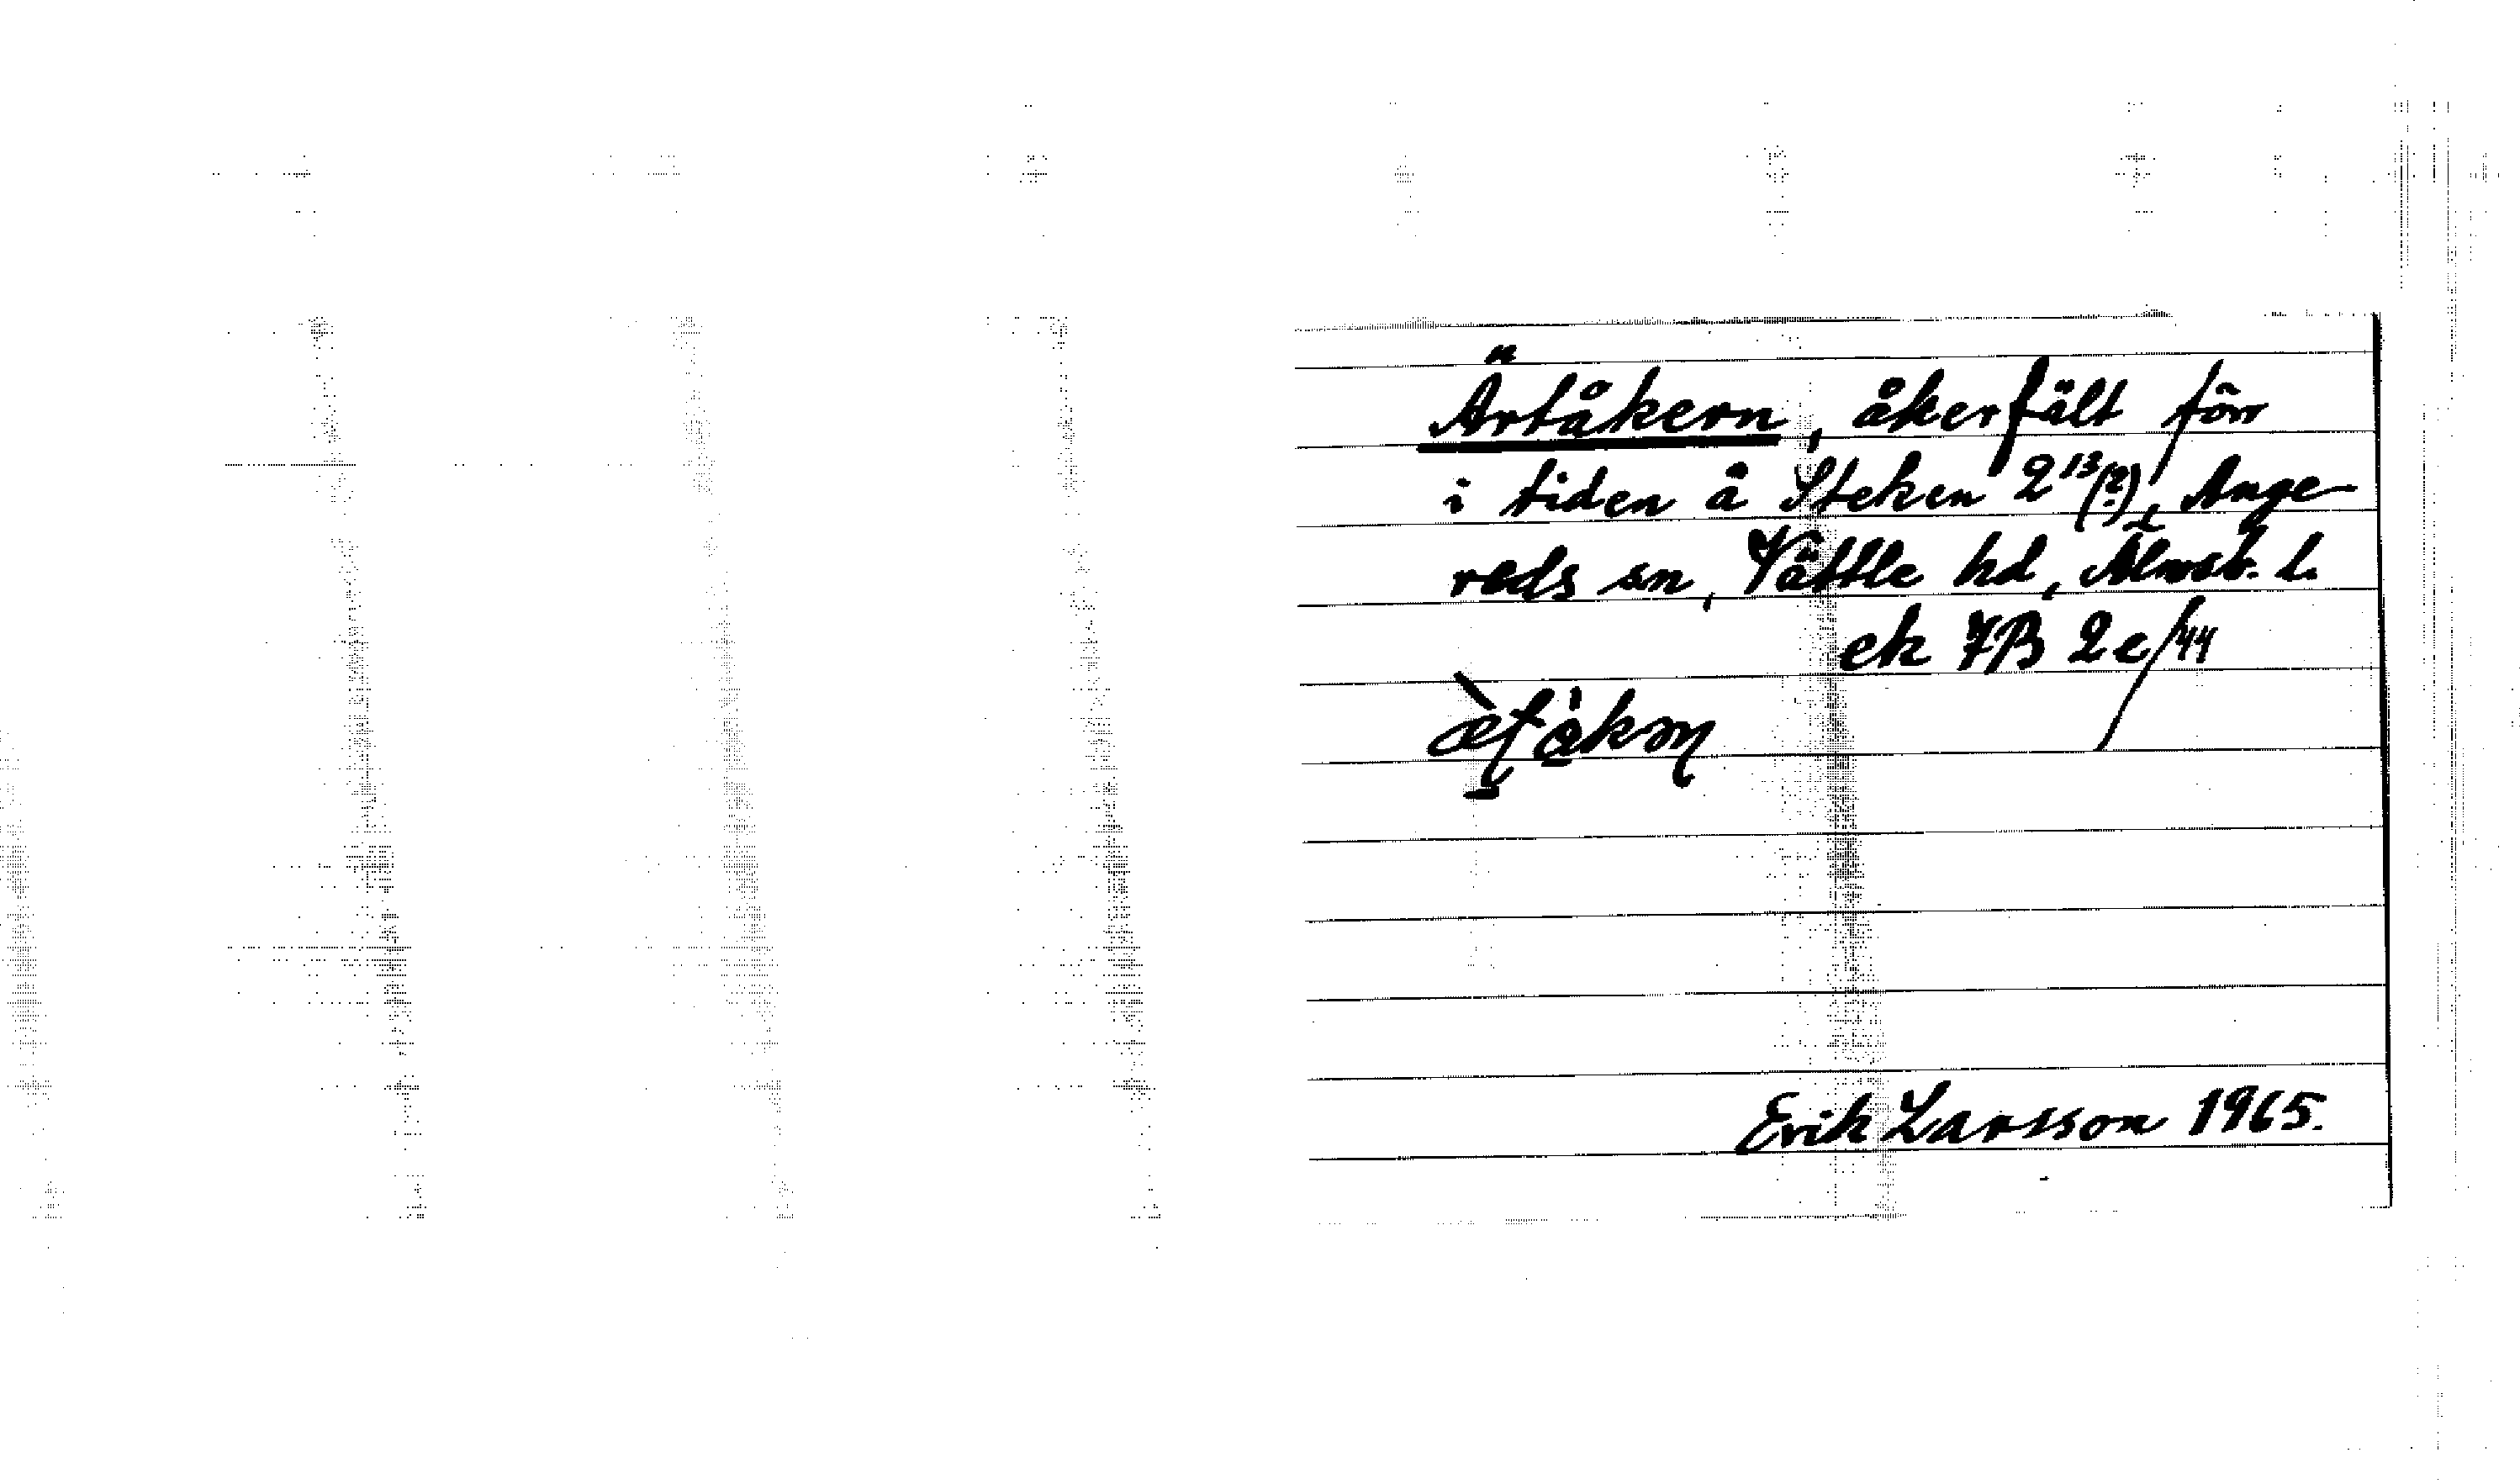 Ärtåkern, åkerfält förr
i tiden å Steken 2¹³(?), Ange-
reds sn, Vättle hd, Älvsb. l.
ek 7B 2e/44
Erik Larsson 1965.